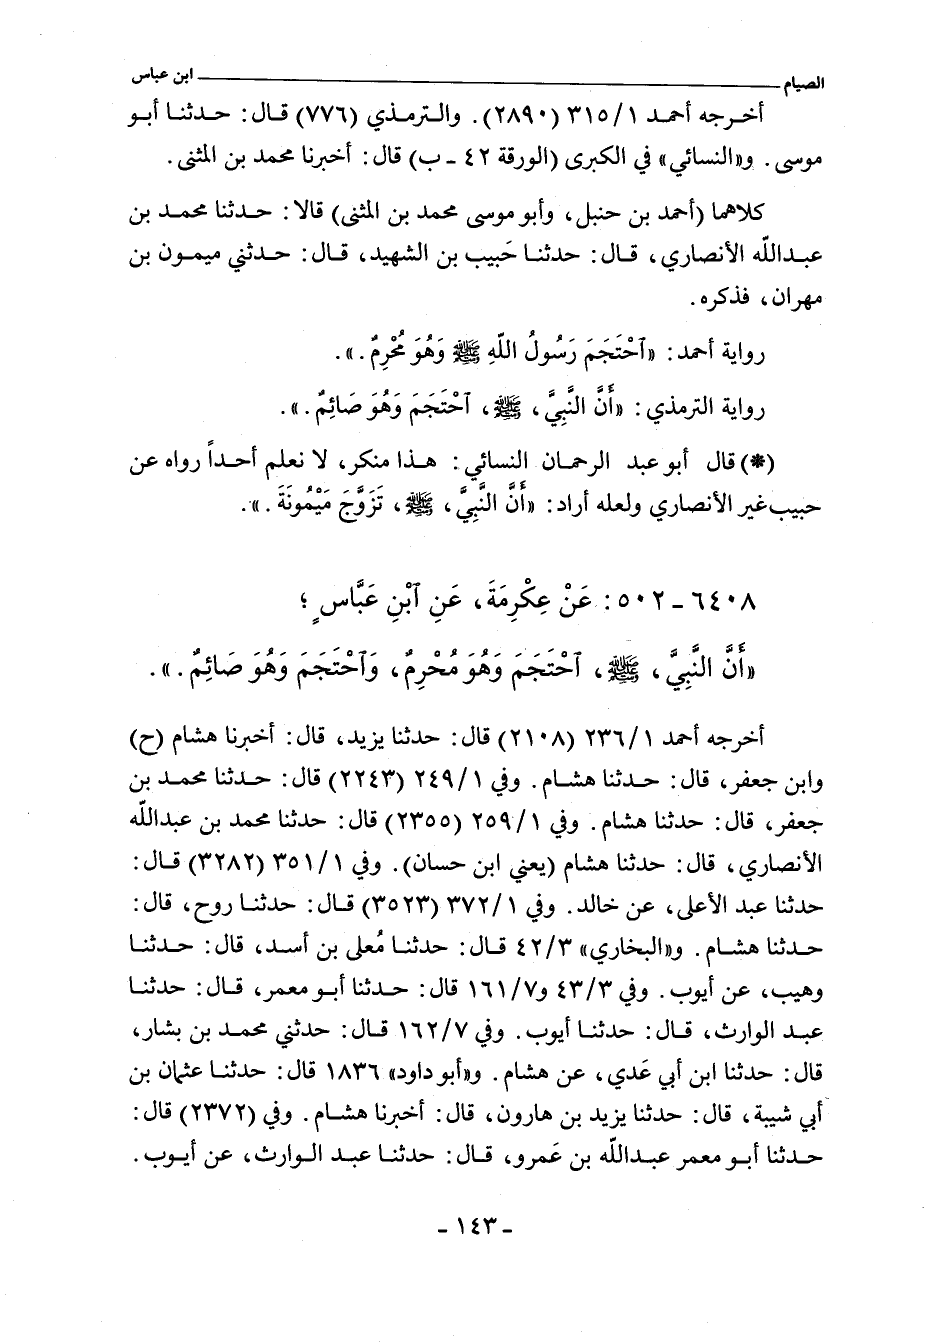 الصيام ــــــــ ابن عباس
أخرجه أحمد ٣١٥/١ (٢٨٩٠). والترمذي (٧٧٦) قال: حدثنا أبو
موسى. و«النسائي» في الكبرى (الورقة ٤٢ - ب) قال: أخبرنا محمد بن المثنى.
كلاهما (أحمد بن حنبل، وأبو موسى محمد بن المثنى) قالا: حدثنا محمد بن
عبدالله الأنصاري، قال: حدثنا حَبيب بن الشهيد، قال: حدثني ميمون بن
مهران، فذكره.
رواية أحمد: «آحْتَجَمَ رَسُولُ اللّهِ ﷺ وَهُوَ مُحْرِمٌ.».
رواية الترمذي: «أَنَّ النَّبِيَّ، ﷺ، آحْتَجَمَ وَهُوَ صَائِمٌ.».
(*) قال أبو عبد الرحمان النسائي: هذا منكر، لا نعلم أحداً رواه عن
حبيب غير الأنصاري ولعله أراد: «أَنَّ النَّبِيَّ، ﷺ، تَزَوَّجَ مَيْمُونَةَ.».
٦٤٠٨ - ٥٠٢: عَنْ عِكْرِمَةَ، عَنِ آبْنِ عَبَّاسٍ؛
«أَنَّ النَّبِيَّ، ﷺ، آحْتَجَمَ وَهُوَ مُحْرِمٌ، وَآحْتَجَمَ وَهُوَ صَائِمٌ.».
أخرجه أحمد ٢٣٦/١ (٢١٠٨) قال: حدثنا يزيد، قال: أخبرنا هشام (ح)
وابن جعفر، قال: حدثنا هشام. وفي ٢٤٩/١ (٢٢٤٣) قال: حدثنا محمد بن
جعفر، قال: حدثنا هشام. وفي ٢٥٩/١ (٢٣٥٥) قال: حدثنا محمد بن عبدالله
الأنصاري، قال: حدثنا هشام (يعني ابن حسان). وفي ٣٥١/١ (٣٢٨٢) قال:
حدثنا عبد الأعلى، عن خالد. وفي ٣٧٢/١ (٣٥٢٣) قال: حدثنا روح، قال:
حدثنا هشام. و«البخاري» ٤٢/٣ قال: حدثنا مُعلى بن أسد، قال: حدثنا
وهيب، عن أيوب. وفي ٤٣/٣ و١٦١/٧ قال: حدثنا أبو معمر، قال: حدثنا
عبد الوارث، قال: حدثنا أيوب. وفي ١٦٢/٧ قال: حدثني محمد بن بشار،
قال: حدثنا ابن أبي عَدي، عن هشام. و«أبو داود» ١٨٣٦ قال: حدثنا عثمان بن
أبي شيبة، قال: حدثنا يزيد بن هارون، قال: أخبرنا هشام. وفي (٢٣٧٢) قال:
حدثنا أبو معمر عبدالله بن عَمرو، قال: حدثنا عبد الوارث، عن أيوب.
- ١٤٣ -